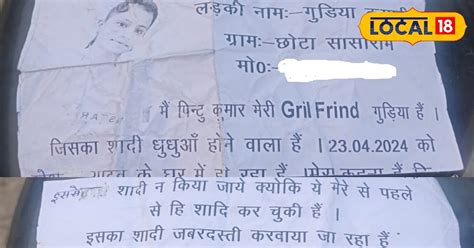 LOCAL 18
लड़की नाम:- गुड़िया
ग्राम:- छोटा सासाराम
मो0:-
मैं पिन्टु कुमार मेरी Gril Frind गुड़िया हैं ।
जिसका शादी धुधुआँ होने वाला हैं । 23.04.2024 को
के घर में हो रहा हैं ।
शादी न किया जाये क्योकि ये मेरे से पहले
से हि शादि कर चुकी हैं ।
इसका शादी जबरदस्ती करवाया जा रहा हैं